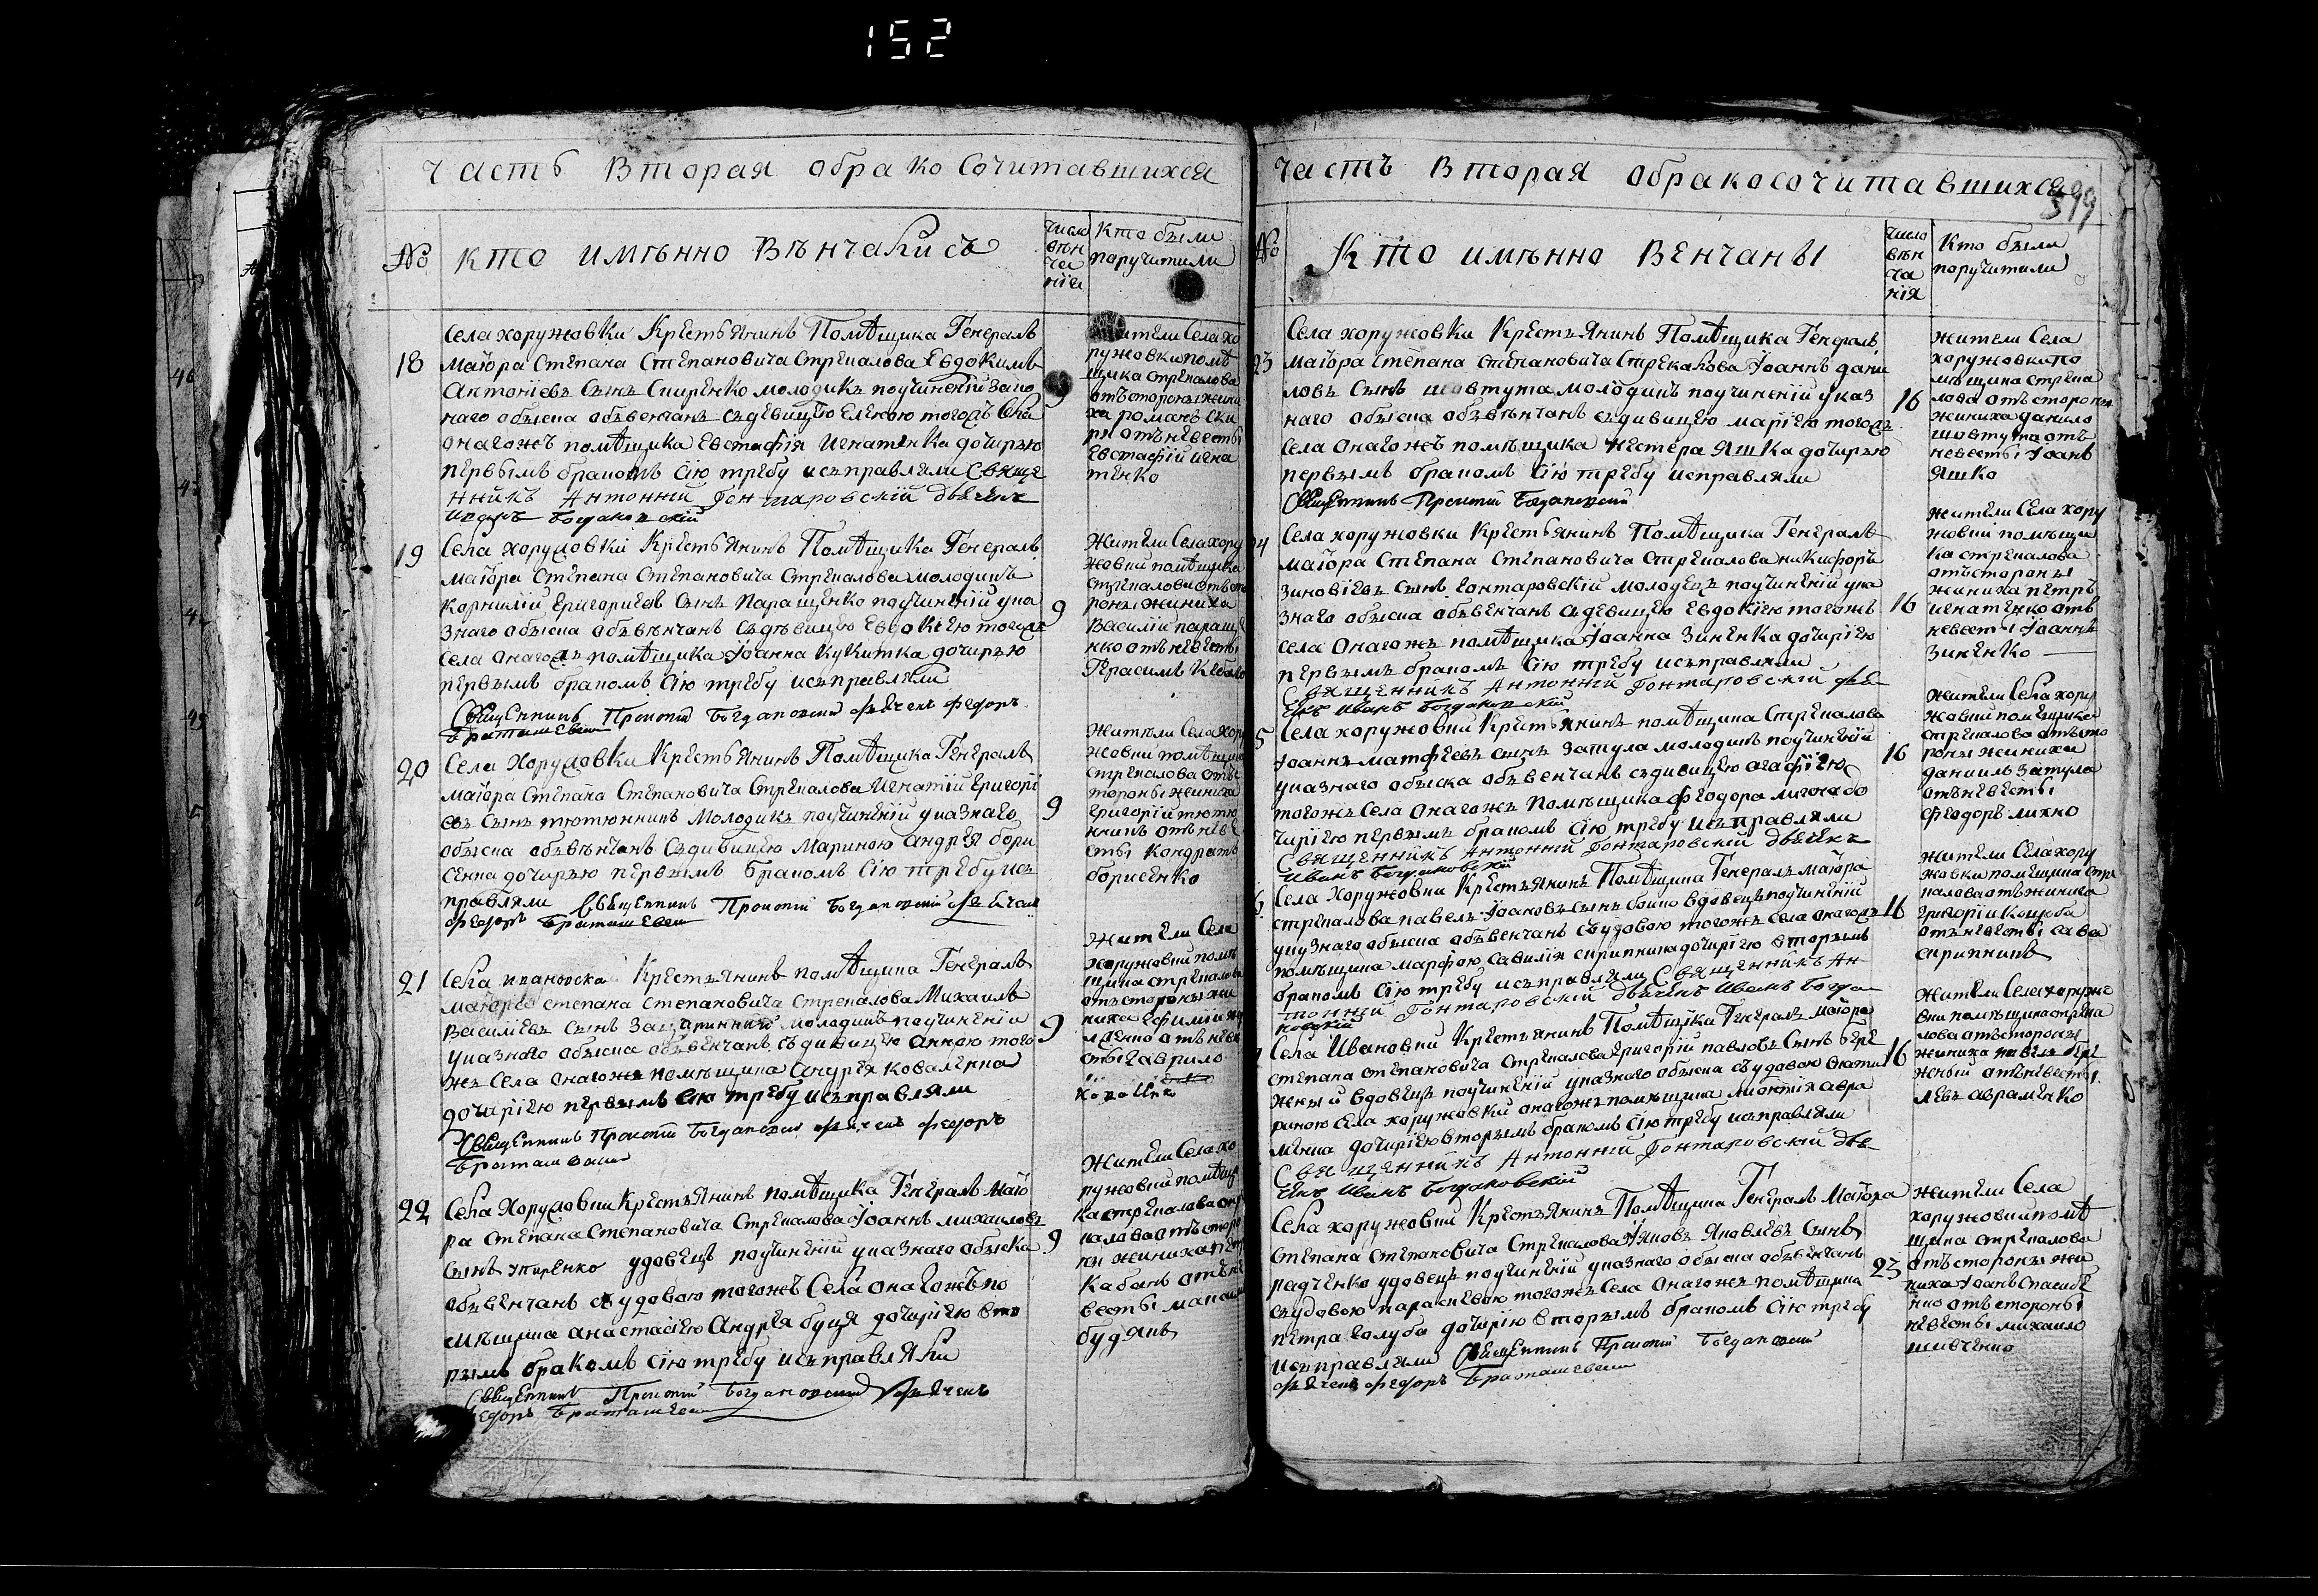 152
часть вторая обракосочитавшихся
№
кто имѣнно вѣнчались
число вѣнчанія
кто были поручители
18
Села хоружовки Крестьянинъ Помѣщика Генералъ
маіора Степана Степановича Стрекалова Евдокимъ
Антоніевъ сынъ молодикъ поучиненій
наго обыска объвенчанъ съдевицею Еленою тогожъ села
онагожъ помѣщика Евстафія Игнатенка дочирью
первымъ бракомъ сію требу исъправляли Свяще
нникъ Антонній Гонтаровскій дьячекъ
Иванъ Богдановскій
9
жители Села хо
ружовки помѣ
щика стрекалова
отъ стороны жени
ха романъ
ря отъ невесты
Евстафій игна
тенко
19
Села хоружовкі Крестьянинъ Помѣщика Генералъ
маіора Степана Степановича Стрекалова молодикъ
корнилій григориевъ сынъ Паращенко поучиненій ука
знаго обыска объвѣнчанъ съдѣвицею Евдокіею тогожъ
села онагожъ помѣщика Іоанна дочирью
первымъ бракомъ сію требу исъправляли
Священникъ Прокопій Богдановскій дьячекъ федоръ
Браташевскій
9
Жители Села хору
жовки помѣщика
стрекалова отъ сто
роны жениха
василій паращѣ
нко отъ невесты
Герасимъ
20
Села Хоружовки Крестьянинъ Помѣщика Генералъ
маіора Степана Степановича Стрекалова Игнатій григорі
евъ сынъ тютюнникъ молодикъ поучиненій указнаго
обыска объвѣнчанъ съдивицею Мариною андрея бори
сенка дочирью первымъ бракомъ сію требу исъ
правляли Священникъ Прокопій Богдановскій дьячекъ
федоръ Браташевскій
9
Жители Села хору
жовки помѣщика
стрекалова отъ с
тороны жениха
григорій тютю
нникъ отъ неве
сты кондратъ
борисенко
21
Села Крестьянинъ помѣщика Генералъ
маіора степана степановича стрекалова Михаилъ
василіевъ сынъ молодикъ поучиненіи
указнаго обыска объвенчанъ съдивицею анною того
жъ села онагожъ помѣщика андрея коваленка
дочирію первымъ сію требу исъправляли
Священникъ Прокопій Богдановскій дьячекъ федоръ
9
Жители Села
хоружовки помѣ
щика стрекалова
отъ стороны же
ниха
отъ неве
сты гаврило
22
Села Хоружовки Крестьянинъ помѣщика Генералъ Маіо
ра степана Степановича Стрекалова Іоаннъ михаиловъ
сынъ удовецъ поучиненій указнаго обыска
объвенчанъ съ удовою тогожъ Села онагожъ по
мѣщика анастасіею Андрея буця дочирію вто
рымъ бракомъ сію требу исъправляли
Священникъ Прокопій Богдановскій дьячекъ
федоръ Браташевскій
9
Жители Села хо
ружовки помѣщи
ка стрекалова
отъ сторо
ны жениха
Кабанъ отъ не
весты
будякъ
часть вторая обракосочитавшихся
599
№
Кто имѣнно венчаны
число вѣнчанія
Кто были поручители
23
Села хоружовки Крестьянинъ Помѣщика Генералъ
маіора Степана Степановича Стрекалова Іоаннъ дани
ловъ сынъ шовтута молодикъ поучиненій указ
наго обыска объвѣнчанъ съдивицею маріею тогожъ
села онагожъ помѣщика нестера Яшка дочирью
первымъ бракомъ сію требу исправляли
Священникъ Прокопій Богдановскій
16
жители Села
хоружовки по
мѣщика стрека
лова отъ стороны
жениха данило
шовтута отъ
невесты Іоанъ
Яшко
24
Села хоружовки Крестьянинъ Помѣщика Генералъ
маіора Степана Степановича Стрекалова никифоръ
Зиновіевъ сынъ гонтаровскій молодецъ поучиненій ука
знаго обыска объвенчанъ съдевицею Евдокіею тогожъ
села онагожъ помѣщика Іоанна Зиненка дочирію
первымъ бракомъ сію требу исъправляли
Священникъ Антонній Гонтаровскій дья
чекъ Иванъ Богдановскій
16
жители Села хору
жовки помѣщи
ка стрекалова
отъ стороны
жениха петръ
игнатенко отъ
невесты Іоаннъ
Зиненко
5
Села хоружовки Крестьянинъ помѣщика Стрекалова
Іоаннъ матфеевъ сынъ Затула молодикъ поучиненій
указнаго обыска объвенчанъ съдивицею агафіею
тогожъ Села онагожъ помѣщика феодора до
чирію первымъ бракомъ сію требу исъправляли
Священникъ Антонній Гонтаровскій дьячекъ
Иванъ Богдановскій
16
жители Села хору
жовки помѣщика
стрекалова отъ сто
роны жениха
даниилъ Затула
отъ невесты
феодоръ лихно
6
Села Хоружовки Крестьянинъ Помѣщика Генералъ маіора
стрекалова павелъ Іоановъ сынъ бойко вдовецъ поучиненій
указнаго обыска объвенчанъ съ удовою тогожъ села онагожъ
помѣщика марфою скрипника дочирію вторымъ
бракомъ сію требу исъправляли Священникъ Ан
тонній Гонтаровскій дьячекъ Иванъ Богда
новскій
16
жители Села хору
жовки помещика стре
калова отъ жениха
григоріи
отъ невесты сава
скрипникъ
Села Ивановки Крестьянинъ Помѣщика Генералъ маіора
степана степановича стрекалова григорій павловъ сынъ бере
жный вдовецъ поучиненій указнаго обыска съ удовою екати
риною села хоружовки онагожъ помѣщика авра
менка дочирію вторымъ бракомъ сію требу исъправляли
Священникъ Антонній Гонтаровскій дья
чекъ Иванъ Богдановскій
16
жители Села хоружо
вки помѣщика стрека
лова отъ стороны
жениха павелъ бере
жный отъ невесты
левъ авраменко
Села хоружовки Крестьянинъ Помѣщика Генералъ Маіора
степана степановича Стрекалова Яковъ Яковлевъ сынъ
радченко удовецъ поучиненій указнаго обыска объвенчанъ
съ удовою параскевою тогожъ села онагожъ помѣщика
петра голуба дочирію вторымъ бракомъ сію требу
исъправляли Священникъ Прокопій Богдановскій
дьячекъ федоръ Браташевскій
23
жители Села
хоружовки помѣ
щика стрекалова
отъ стороны же
ниха Іоанъ спасибе
нко отъ стороны
невесты михаило
шивченко